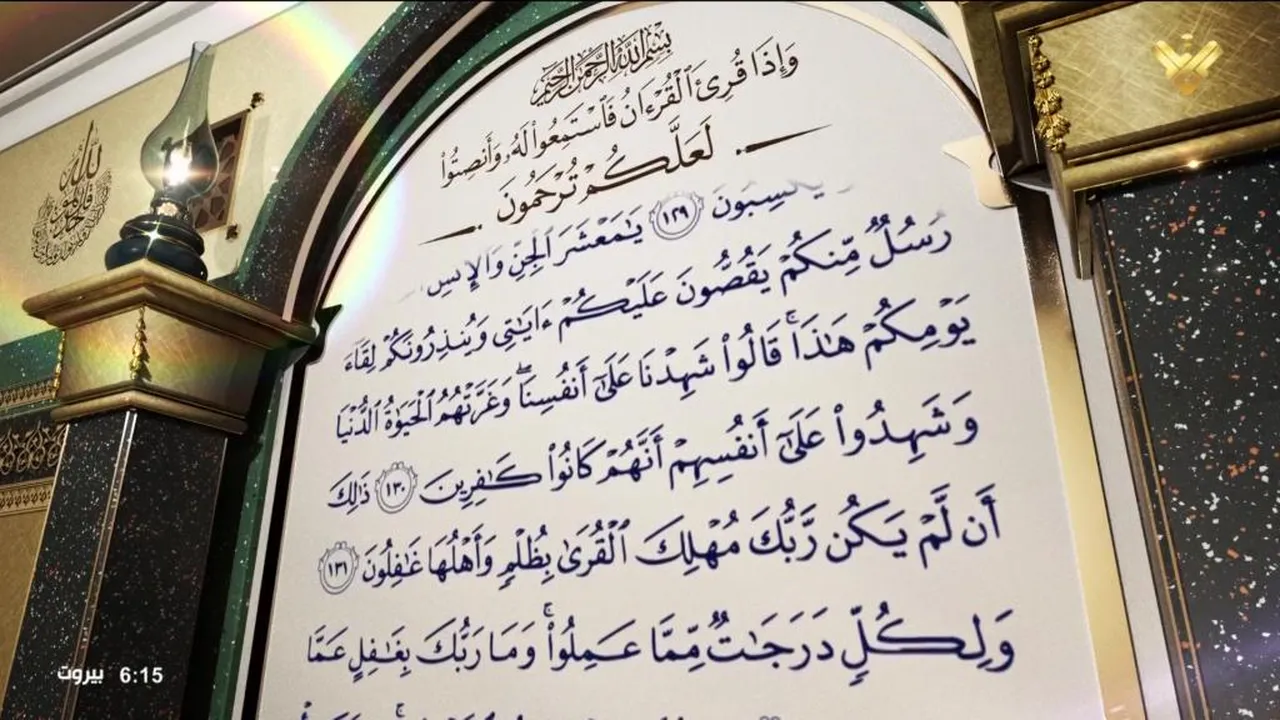 بِسْمِ اللَّهِ الرَّحْمَٰنِ الرَّحِيمِ
وَإِذَا قُرِئَ ٱلْقُرْءَانُ فَٱسْتَمِعُوا۟ لَهُۥ وَأَنصِتُوا۟
لَعَلَّكُمْ تُرْحَمُونَ
يَكْسِبُونَ ١٢٩ يَٰمَعْشَرَ ٱلْجِنِّ وَٱلْإِنسِ
رُسُلٌ مِّنكُمْ يَقُصُّونَ عَلَيْكُمْ ءَايَٰتِى وَيُنذِرُونَكُمْ لِقَآءَ
يَوْمِكُمْ هَٰذَا ۚ قَالُوا۟ شَهِدْنَا عَلَىٰٓ أَنفُسِنَا ۖ وَغَرَّتْهُمُ ٱلْحَيَوٰةُ ٱلدُّنْيَا
وَشَهِدُوا۟ عَلَىٰٓ أَنفُسِهِمْ أَنَّهُمْ كَانُوا۟ كَٰفِرِينَ ١٣٠ ذَٰلِكَ
أَن لَّمْ يَكُن رَّبُّكَ مُهْلِكَ ٱلْقُرَىٰ بِظُلْمٍ وَأَهْلُهَا غَٰفِلُونَ ١٣١
وَلِكُلٍّ دَرَجَٰتٌ مِّمَّا عَمِلُوا۟ ۚ وَمَا رَبُّكَ بِغَٰفِلٍ عَمَّا
بيروت 6:15